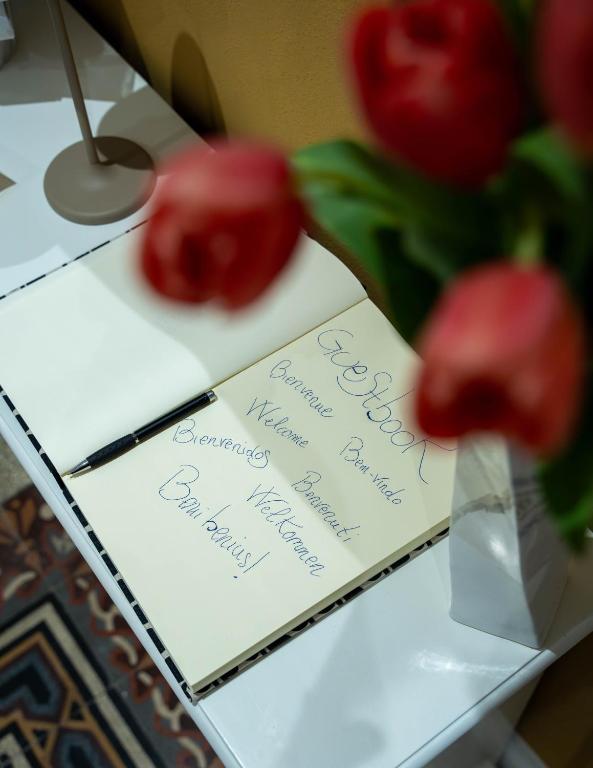 Guestbook
Bienvenue
Welcome Bem-vindo
Bienvenidos Benvenuti
Willkommen